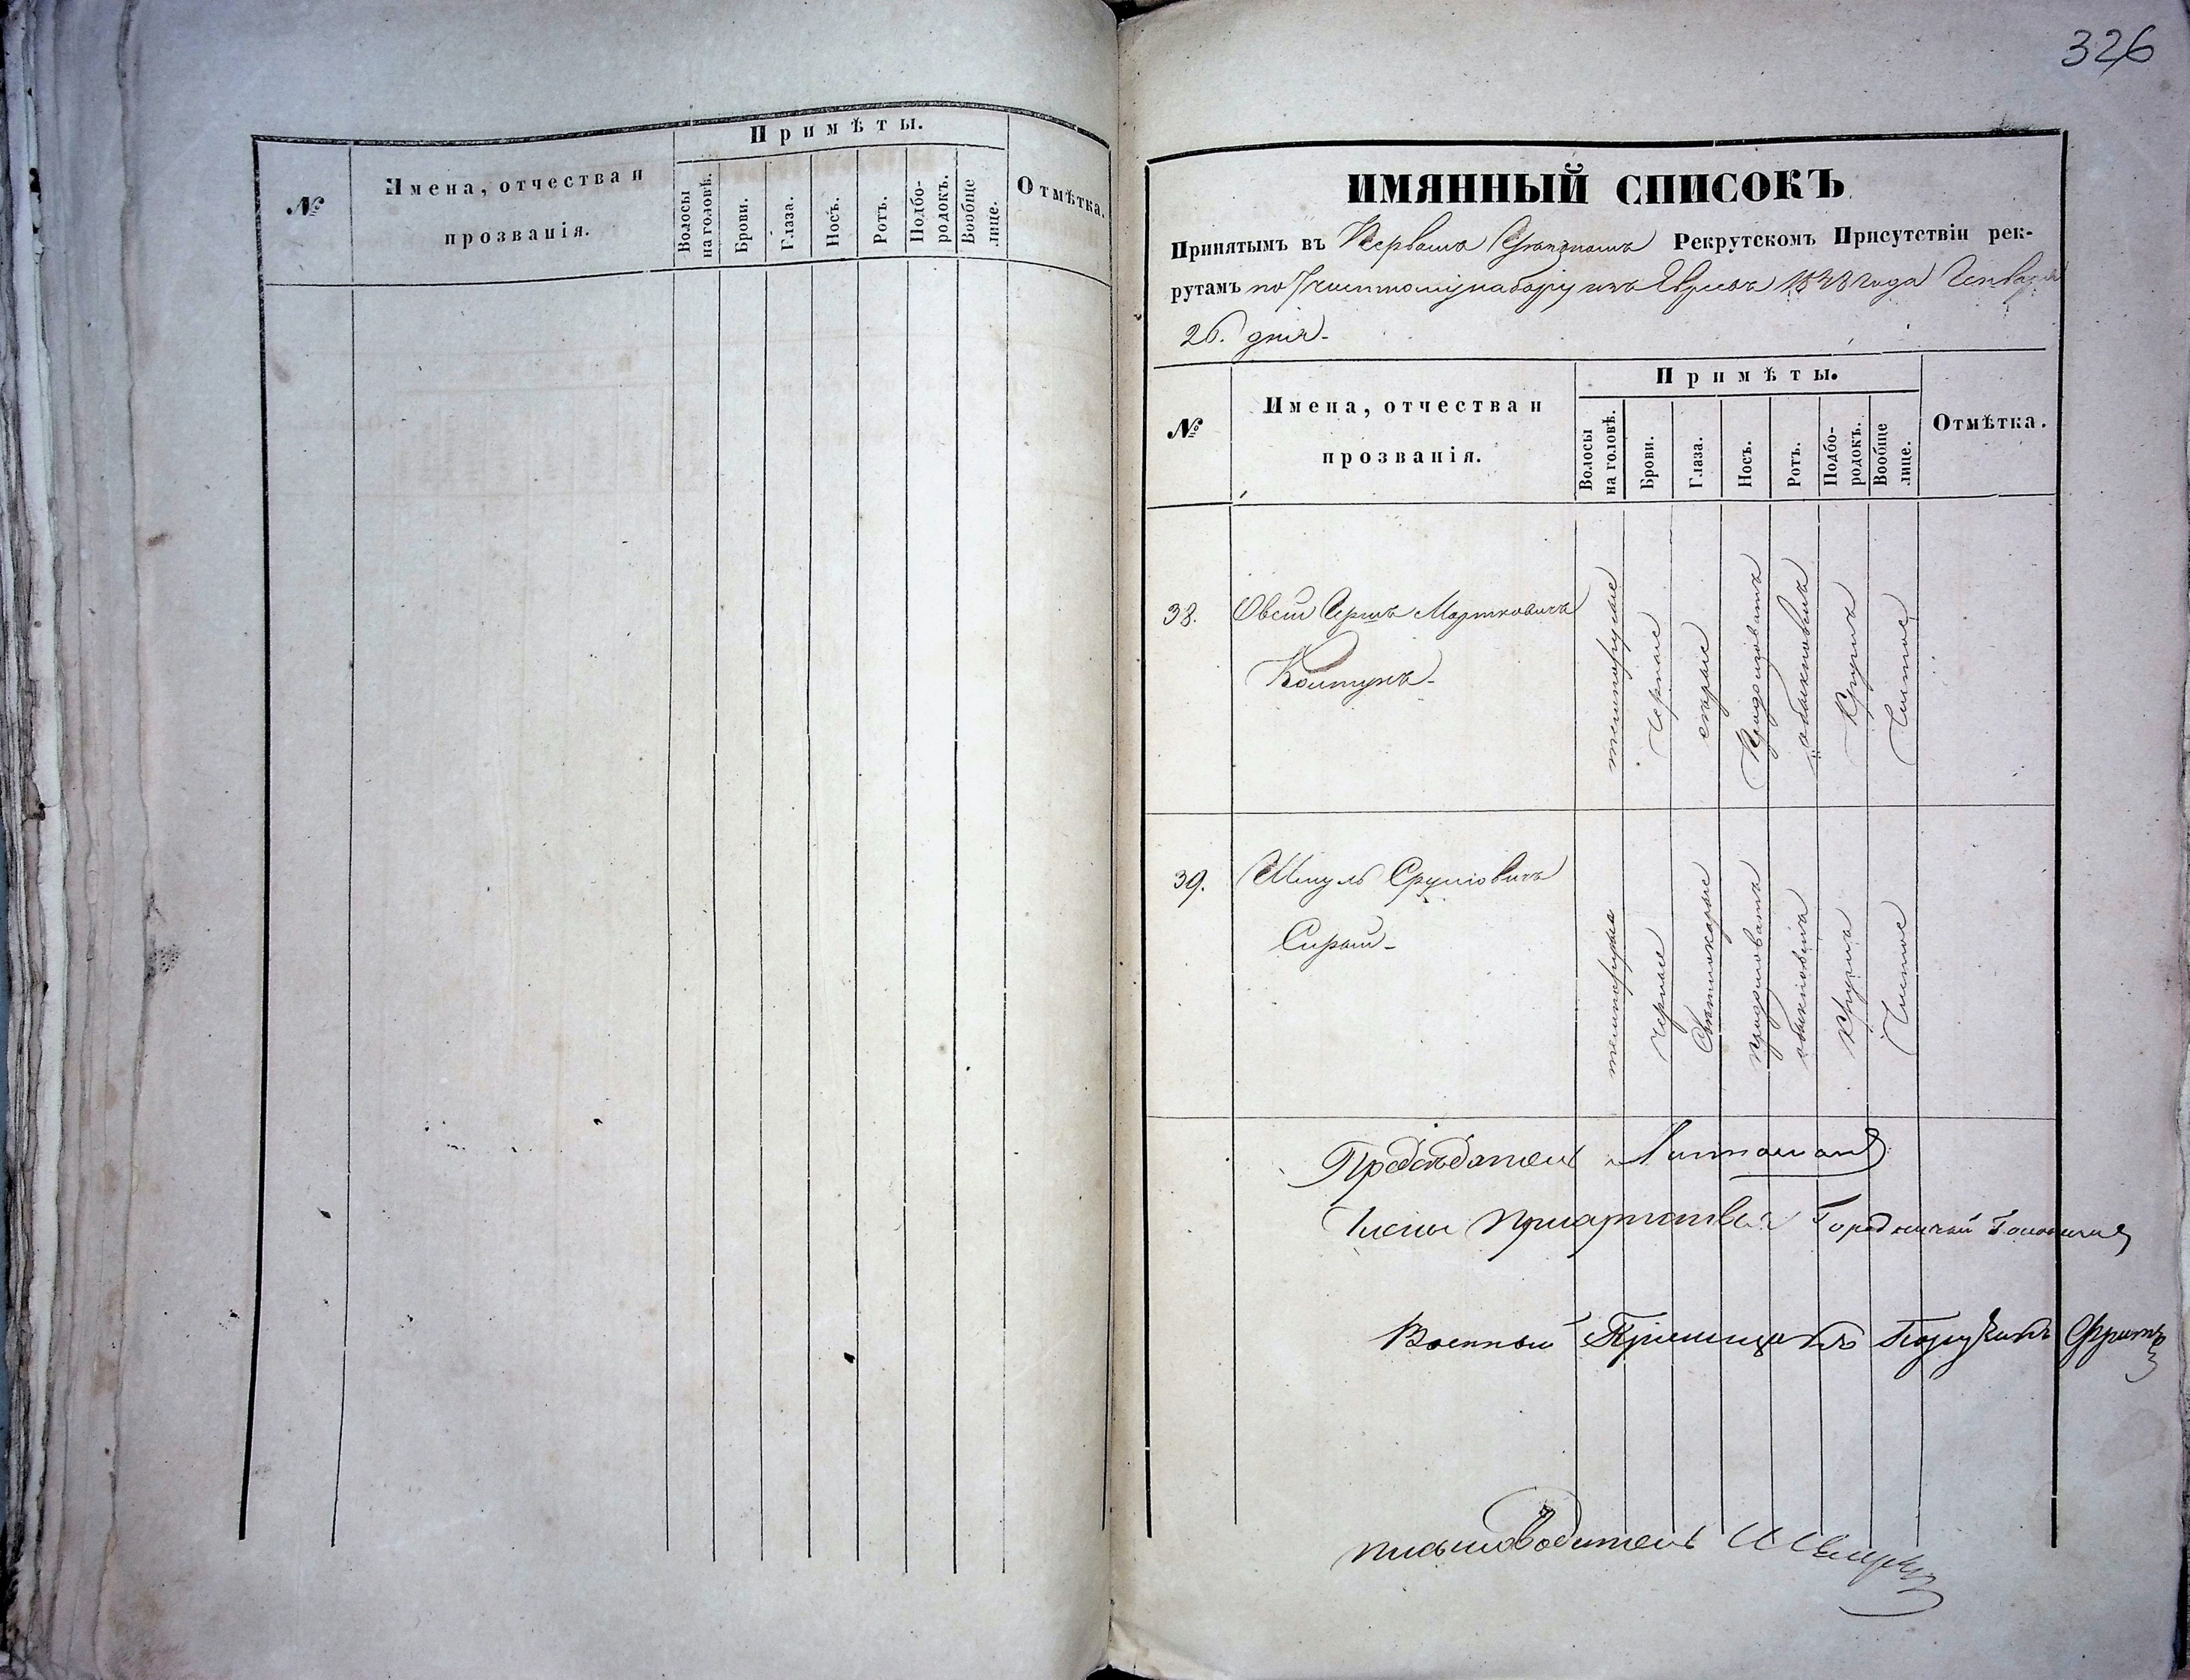 326
№
Имена, отчества и
прозванія.
Примѣты.
Волосы
на головѣ.
Брови.
Глаза.
Носъ.
Ротъ.
Подбо-
родокъ.
Вообще
лице.
Отмѣтка.
ИМЯННЫЙ СПИСОКЪ
Принятымъ въ Первомъ Рекрутскомъ Присутствіи рек-
рутамъ по Частному набору изъ Евреевъ года Генваря
26. дня.
№
Имена, отчества и
прозванія.
Примѣты.
Волосы
на головѣ.
Брови.
Глаза.
Носъ.
Ротъ.
Подбо-
родокъ.
Вообще
лице.
Отмѣтка.
38.
Овсій Гершъ Мортковичъ
Колтунъ
темнорусые
черные
карые
продолговатъ
обыкновенъ
Круглъ
Чистое
39.
Шмуль Сруліовичъ
темнорусые
черные
Свѣтлокарые
продолговатъ
обыкновенъ
Круглъ
Чистое
Предсѣдатель
Члены Присутствія Городничій
Военный Пріемщикъ Поручикъ
письмоводитель